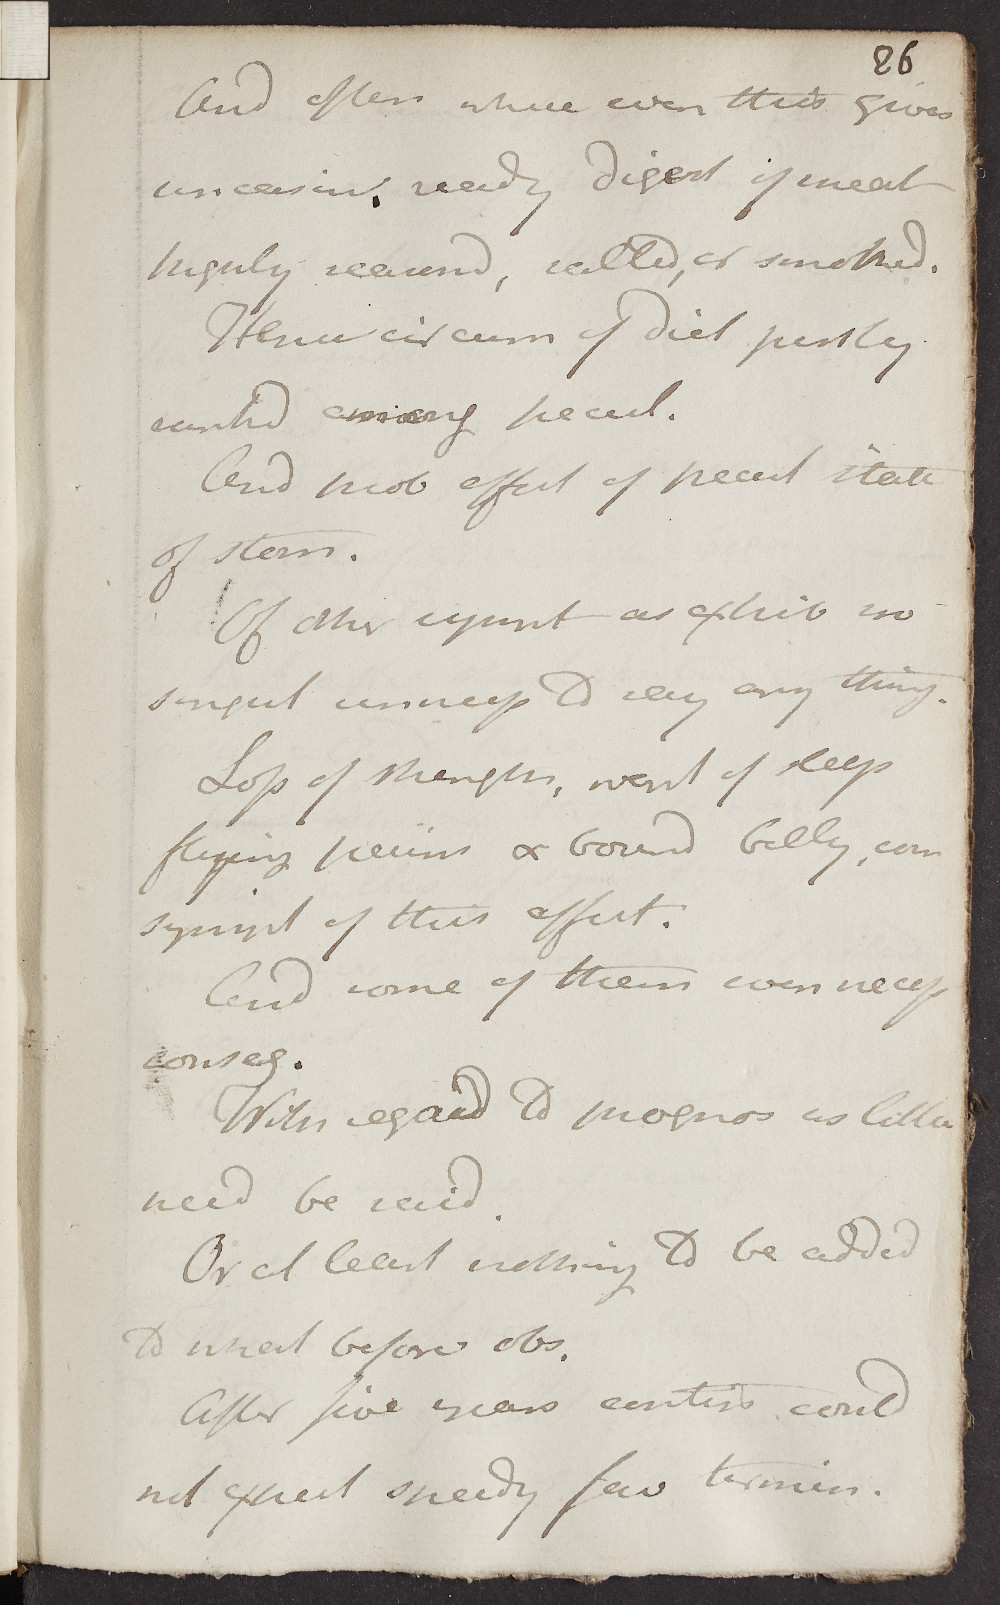 86
And often where even this gives
uneasin. ready digest if meat
highly seasond, salted, or smoked.
Hence circum of diet justly
rankd among pecul.
And prob effect of pecul state
of stom.
Of other sympt as exhib no
singul unnecess to say any thing.
Loss of strength, want of sleep
flying pains & bound belly, com
sympt of this affect.
And some of them even necess
conseq.
With regard to prognos as little
need be said.
Or at least nothing to be added
to what before obs.
After five years contin could
not expect speedy fav termin.